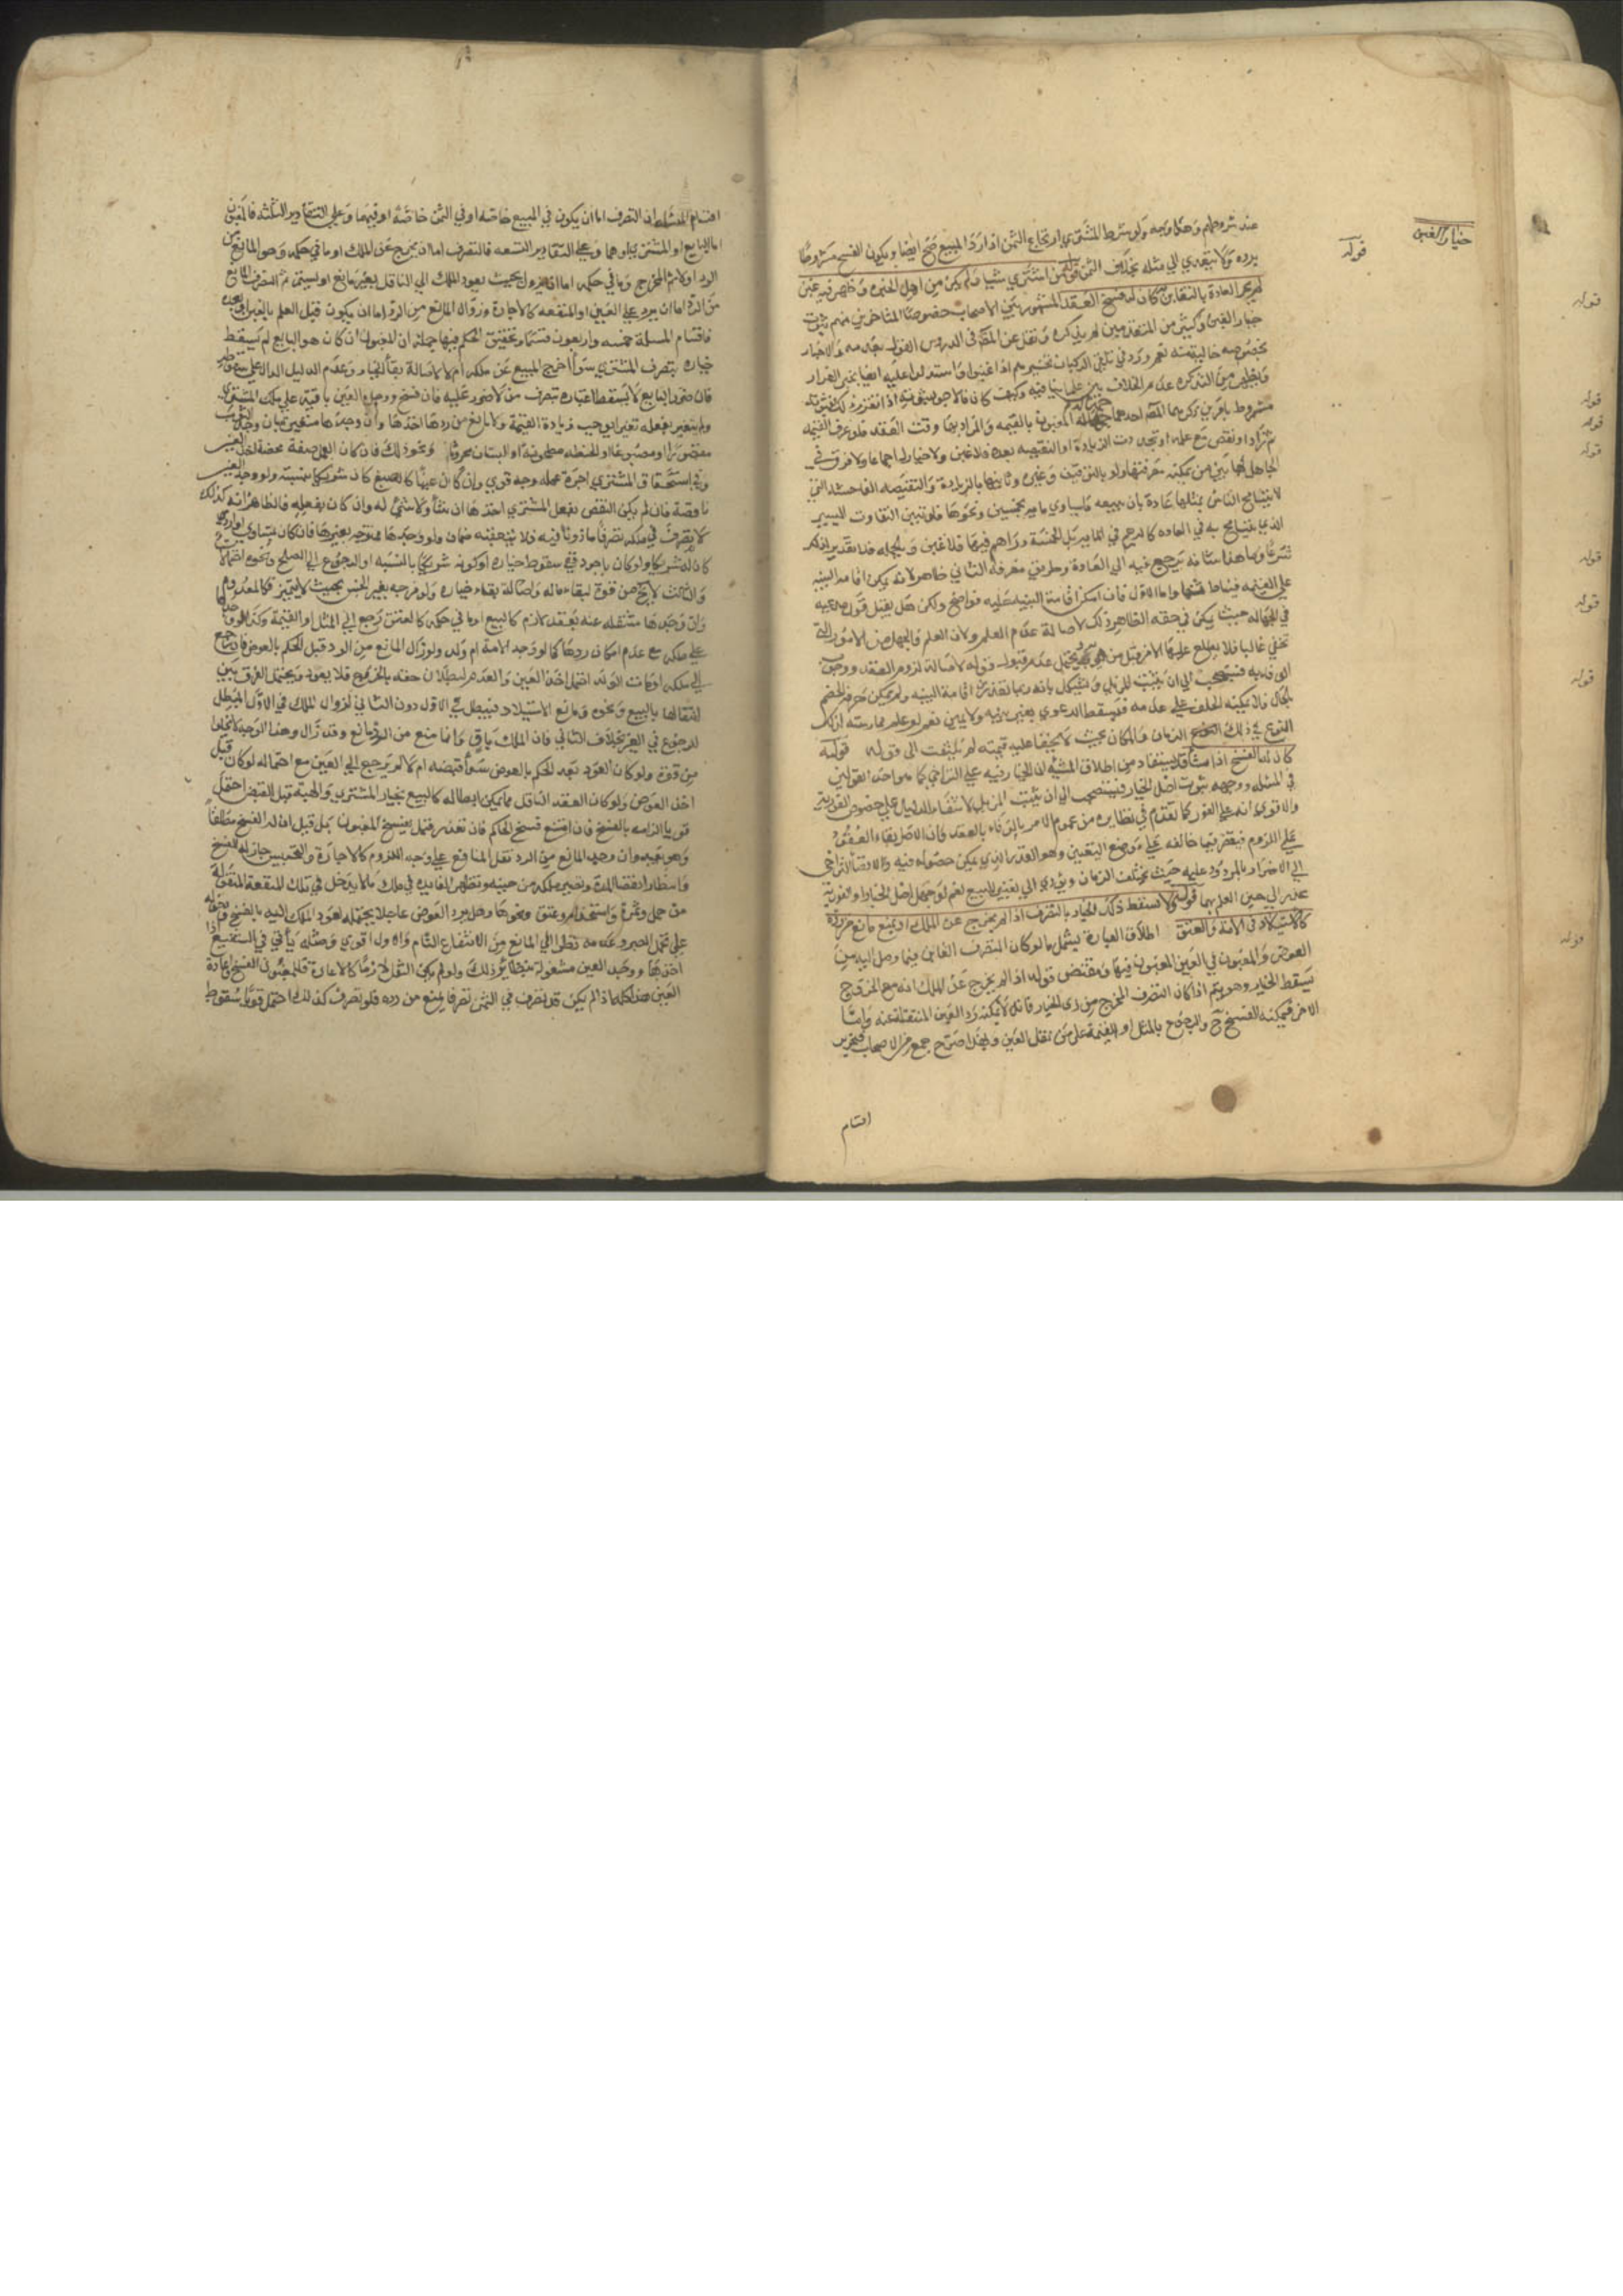 خيار الغبن
قوله
عند شروطهم وحكاويه ولو شرط المشتري ارتجاع الثمن اذا رد المبيع صح ايضا ويكون الفسخ مشروطا
برده ولا يتعدي الي مثله بخلاف الثمن قوله من اشتري شيا ولم يكن من اهل الخبره وظهر فيه غبن
لم تجر العادة بالتغابن به كان له فسخ العقد المشهور بين الاصحاب خصوصا المتاخرين منهم ثبوت
خيار الغبن وكثير من المتقدمين لم يذكره ونقل عن المص في الدروس القول بعدمه والاخبار
بخصوصه خالية منه نعم ورد في تلقي الركبان تخييرهم اذا غبنوا واستدلوا عليه ايضا بخبر الضرار
ويظهر من التذكره عدم الخلاف بين علمائنا فيه وكيف كان فالاجود ثبوته اذا تقرر ذلك فثبوته
مشروط بامرين ذكرهما المص احدهما جهالة المغبون بالقيمه والمراد بها وقت العقد فلو عرف القيمه
ثم زاد او نقص مع علمه او تجددت الزيادة او النقيصه بعده فلا غبن ولا خيار له اجماعا ولا فرق في
الجاهل بها بين من يمكنه معرفتها ولو بالتوقف وغيره وثانيهما بالزيادة والنقيصه الفاحشه التي
لا يتسامح الناس بمثلها عادة بان يبيعه ما يساوي ماية بخمسين ونحوها فلو تبين التفاوت اليسير
الذي يتسامح به في العاده كالدرهم في المايه بل الخمسة دراهم فيها فلا غبن وبالجمله فلا تقدير لذلك
شرعا وما هذا شانه يرجع فيه الي العادة وطريق معرفة الثاني ظاهر لانه يمكن اقامة البينه
علي القيمه فيناط بها واما الاول فان امكن اقامة البينه عليه فواضح ولكن هل يقبل قول مدعيه
في الجهاله حيث يمكن في حقه الظاهر ذلك لاصالة عدم العلم ولان العلم والجهل من الامور التي
تخفي غالبا فلا يطلع عليها الا من قبل من هي به ويحتمل عدم قبول قوله لاصالة لزوم العقد ووجود
المقتضي فيستصحب الي ان يثبت المزيل ويشكل بانه ربما تعذرت اقامة البينه ولم يمكن معرفة الخصم
بالحال فلا يمكنه الحلف علي عدمه فتسقط الدعوي بغير بينه ولا يمين نعم لو علم ممارسته لذلك
النوع في ذلك الزمان والمكان بحيث لا يخفي عليه قيمته لم يلتفت الي قوله قوله
كان له الفسخ اذا شاء قد يستفاد من اطلاق المشيه ان الخيار فيه علي التراخي كما هو احد القولين
في المسئله ووجهه ثبوت اصل الخيار فيستصحب الي ان يثبت المزيل لانتفاء الدليل علي خصوص الفوريه
والاقوي انه علي الفور كما تقدم في نظايره من عموم الامر بالوفاء بالعقد وان الاصل بقاء العقود
علي اللزوم فيقتصر فيما خالفه علي موضع اليقين وهو القدر الذي يمكن حصوله فيه ولافضاء التراخي
الي الاضرار بالمردود عليه حيث يختلف الزمان ويؤدي الي تغيير المبيع نعم لو جهل اصل الخيار او الفوريه
عذر الي حين العلم بهما قوله ولا يسقط ذلك الخيار بالتصرف اذا لم يخرج عن الملك او يمنع مانع من رده
كالاستيلاد في الامة والعتق اطلاق العبارة يشمل ما لو كان المتصرف الغابن فيما وصل اليه من
العوض والمغبون في العين المغبون فيها ومقتضي قوله اذا لم يخرج عن الملك انه مع الخروج
يسقط الخيار وهو يتم اذا كان التصرف المخرج من ذي الخيار فانه لا يمكنه رد العين المنتقلة عنه واما
الاخر فيمكنه الفسخ ح والرجوع بالمثل او القيمة علي من نقل العين وبهذا صرح جمع من الاصحاب وتحرير
اقسام
قوله
قوله
قوله
قوله
قوله
قوله
قوله
قوله
اقسام المسئله ان التصرف اما ان يكون في المبيع خاصة او في الثمن خاصة او فيهما وعلي التقادير الثلثه فالمغبون
اما البايع او المشتري او هما وعلي التقادير التسعه فالتصرف اما ان يخرج عن الملك او ما في حكمه وهو المانع من
الرد او لا ثم المخرج وما في حكمه اما ان يزول بحيث يعود الملك الي الناقل بغير مانع او يستمر ثم التصرف المانع
من الرد اما ان يرد علي العين او المنفعه كالاجارة وزوال المانع من الرد اما ان يكون قبل العلم بالغبن او بعده
فاقسام المسلة خمسه واربعون قسما وتحقيق الحكم فيها جملة ان المغبون ان كان هو البايع لم يسقط
خياره بتصرف المشتري سوأ اخرج المبيع عن ملكه ام لا لاصالة بقاء الخيار وعدم الدليل الدال علي سقوطه
فان ضرر البايع لا يسقط اعتباره بتصرف من لا ضرر عليه فان فسخ ووجد العين باقية علي ملك المشتري
ولم يتغير بفعله تغيرا يوجب زيادة القيمة ولا مانع من ردها اخذها وان وجدها متغيره بان وجد الثوب
مقصورا او مصبوغا او الحنطه مطحونة او البستان محروثا ونحو ذلك فان كان العمل صفة محضة اخذ العين
وفي استحقاق المشتري اجرة عمله وجه قوي وان كان عينا كالصبغ كان شريكا بنسبته ولو وجد العين
ناقصة فان لم يكن النقص بفعل المشتري اخذها ان شاء ولا شئ له وان كان بفعله فالظاهر انه كذلك
لانه تصرف في ملكه تصرفا ماذونا فيه فلا يتعقبه ضمان ولو وجدها ممتزجه بغيرها فان كان بمساو او اردي
كان له شريكا ولو كان باجود ففي سقوط خياره او كونه شريكا بالنسبه او الرجوع الي الصلح وجوه
والثالث لا يخ من قوة لبقاء ماله واصالة بقاء خياره ولو مزجه بغير الجنس بحيث لا يتميز فكالمعدوم
وان وجدها منتقله عنه بعقد لازم كالبيع او ما في حكمه كالعتق رجع الي المثل او القيمة وكذا لو وجدها
علي ملكه مع عدم امكان ردها كما لو وجد الامة ام ولد ولو زال المانع من الرد قبل الحكم بالعوض فان رجع
الي ملكه او مات الولد احتمل اخذ العين والعدم لبطلان حقه بالخروج فلا يعود ويحتمل الفرق بين
انتقالها بالبيع ونحوه ومانع الاستيلاد فيبطل في الاول دون الثاني لزوال الملك في الاول المبطل
للرجوع في العين بخلاف الثاني فان الملك باقي وانما منع من الرد مانع وقد زال وهذا الوجه لا يخلو
من قوة ولو كان العود بعد الحكم بالعوض سوأ قبضه ام لا لم يرجع الي العين مع احتماله لو كان قبل
اخذ العوض ولو كان العقد الناقل مما يمكن ابطاله كالبيع بخيار المشتري والهبه قبل القبض احتمل
قويا الزامه بالفسخ فان امتنع فسخ الحاكم فان تعذر فهل يفسخ المغبون بل قيل ان له الفسخ مطلقا
وهو بعيد وان وجد المانع من الرد نقل المنافع علي وجه اللزوم كالاجارة والتحبيس جاز له الفسخ
وانتظار انقضا المدة وتصير ملكه من حينه وتظهر الفايده في ملك ما لا يدخل في تلك المنفعة المنقولة
من حمل وثمرة واستخدام وعتق ونحوها وهل يرد العوض عاجلا يحتمله لعود الملك اليه بالفسخ
علي تحمل الصبر وعدمه نظرا الي المانع من الانتفاع التام والاول اقوي ومثله يأتي في التضييع اذا
اخذها ووجد العين مشغولة بنظاير ذلك ولو لم يكن النقل لازما كالاعارة فللمغبون الفسخ واعادة
العين هذا كله اذا لم يكن قد تصرف في الثمن تصرفا يمنع من رده فلو تصرف كذلك احتمل قويا سقوط